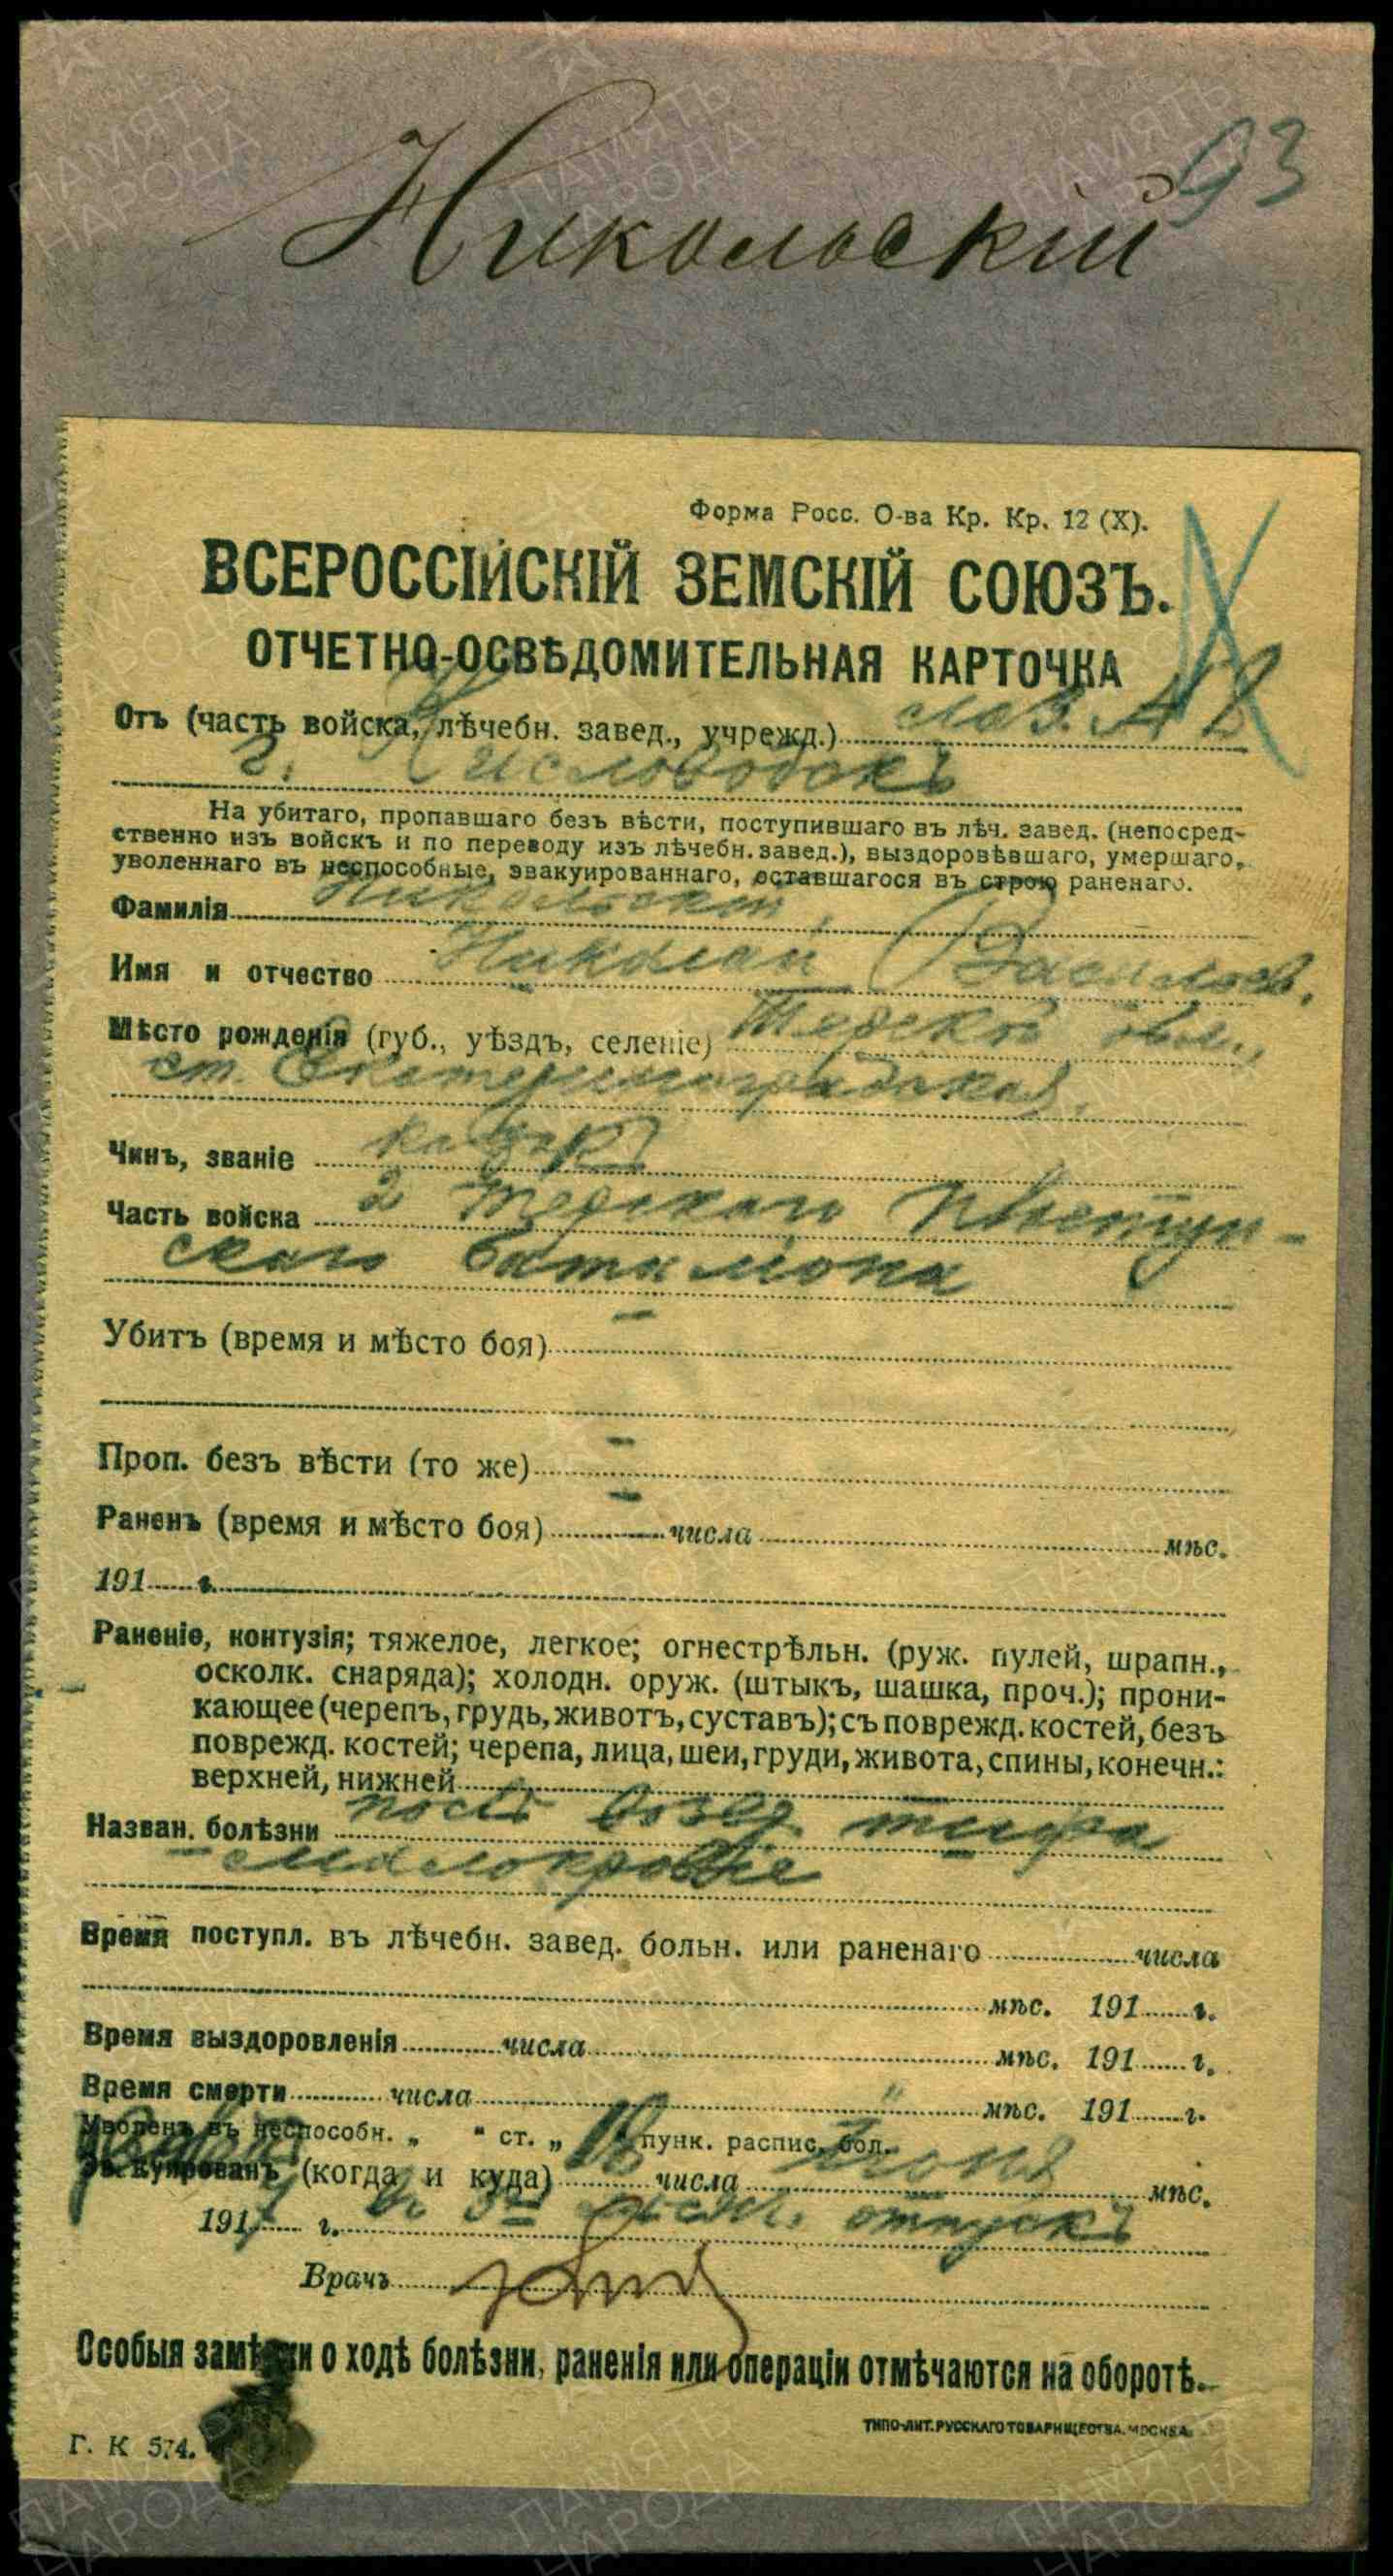 93
Никольскій
Форма Росс. О-ва Кр. Кр. 12 (X).
ВСЕРОССІЙСКІЙ ЗЕМСКІЙ СОЮЗЪ.
ОТЧЕТНО-ОСВѢДОМИТЕЛЬНАЯ КАРТОЧКА
Отъ (часть войска, лѣчебн. завед., учрежд.) лаз.
г. Кисловодскъ
На убитаго, пропавшаго безъ вѣсти, поступившаго въ лѣч. завед. (непосред-
ственно изъ войскъ и по переводу изъ лѣчебн. завед.), выздоровѣвшаго, умершаго,
уволеннаго въ неспособные, эвакуированнаго, оставшагося въ строю раненаго.
Фамилія Никольскій
Имя и отчество Николай Васильев.
Мѣсто рожденія (губ., уѣздъ, селеніе) Терской обл.,
ст. Екатериноградская.
Чинъ, званіе казак
Часть войска 2 Терскаго Пластун-
скаго батальона
Убитъ (время и мѣсто боя) -
Проп. безъ вѣсти (то же) -
Раненъ (время и мѣсто боя) - числа мѣс.
191 г.
Раненіе, контузія; тяжелое, легкое; огнестрѣльн. (руж. пулей, шрапн.,
осколк. снаряда); холодн. оруж. (штыкъ, шашка, проч.); прони-
кающее (черепъ, грудь, животъ, суставъ); съ поврежд. костей, безъ
поврежд. костей; черепа, лица, шеи, груди, живота, спины, конечн.:
верхней, нижней
Назван. болѣзни послѣ возвр. тифа
- малокровіе
Время поступл. въ лѣчебн. завед. больн. или раненаго числа
мѣс. 191 г.
Время выздоровленія числа мѣс. 191 г.
Время смерти числа мѣс. 191 г.
Уволенъ въ неспособн. „ " ст. „ пунк. распис. бол.
Эвакуированъ (когда и куда) 18 числа мѣс.
191 г. отпускъ
Врачъ
Особыя замѣтки о ходѣ болѣзни, раненія или операціи отмѣчаются на оборотѣ.
ТИПО-ЛИТ. РУССКАГО ТОВАРИЩЕСТВА. МОСКВА.
Г. К 574.
ПАМЯТЬ НАРОДА